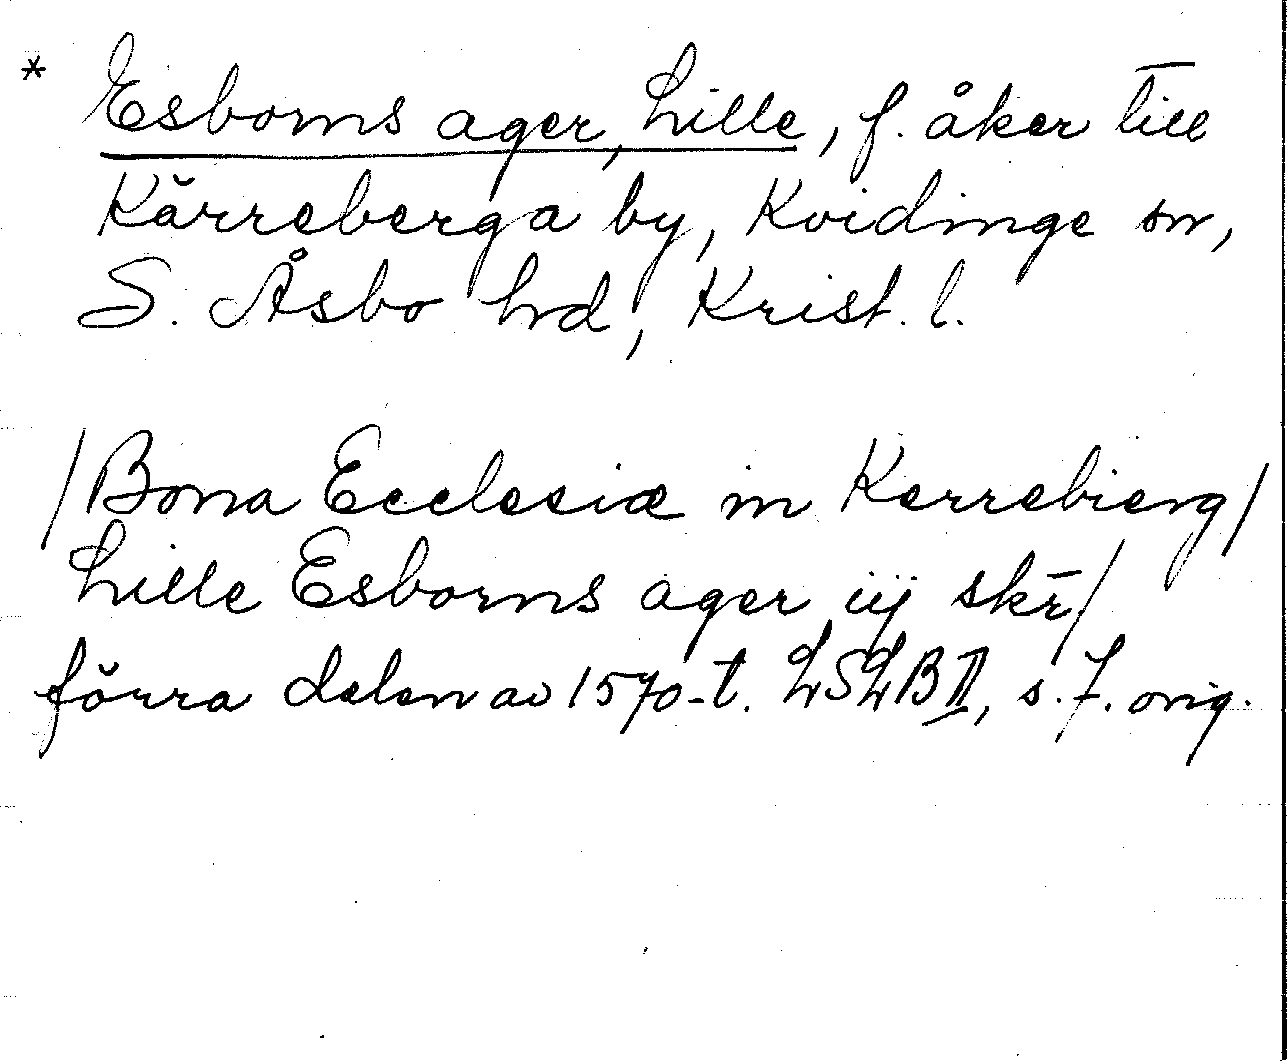 * Esborns ager, Lille, f. åker till
Kärreberga by, Kvidinge sn,
S. Åsbo hrd, Krist. l.
/Bona Ecclesiæ in Kerrebierg/
Lille Esborns ager iij skr̄/
förra delen av 1570-t. LSLB II, s. 7. orig.